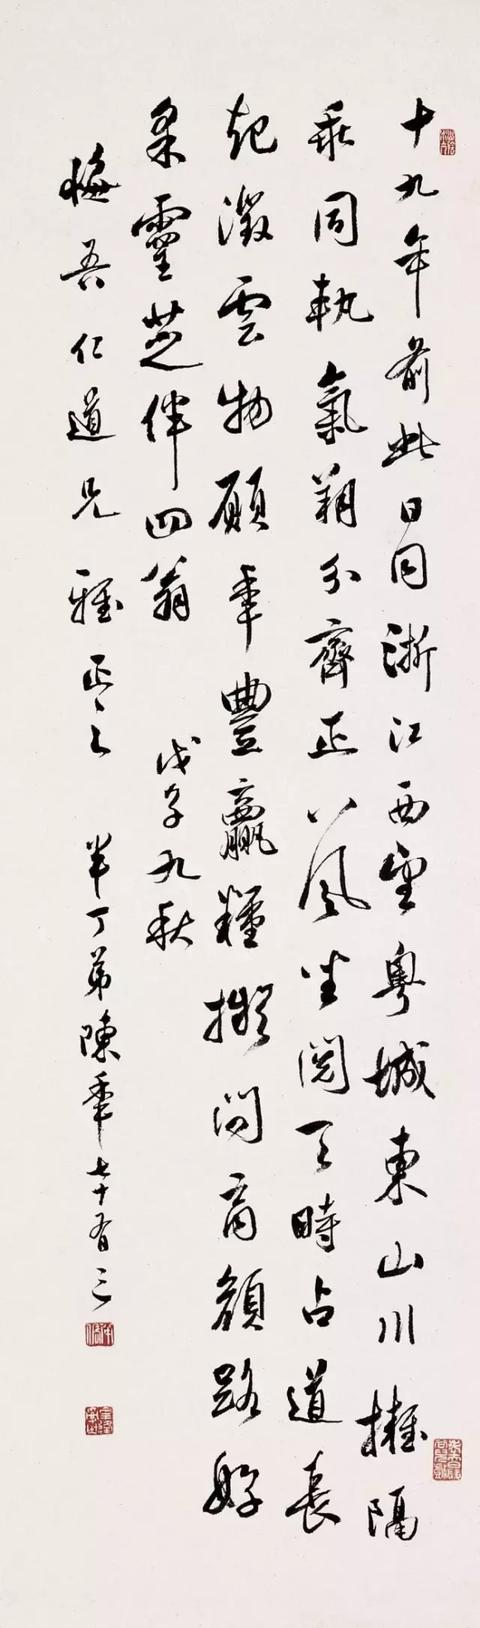 十九年前此日同浙江西望粤城東山川擁隔
乖同執氣朔分齊正八風坐閱天時占道長
起徵雲物願年豐贏糧擬問商顏路好
采靈芝伴四翁 戊子九秋
吾仁道兄雅正之 半丁弟陳年七十有三